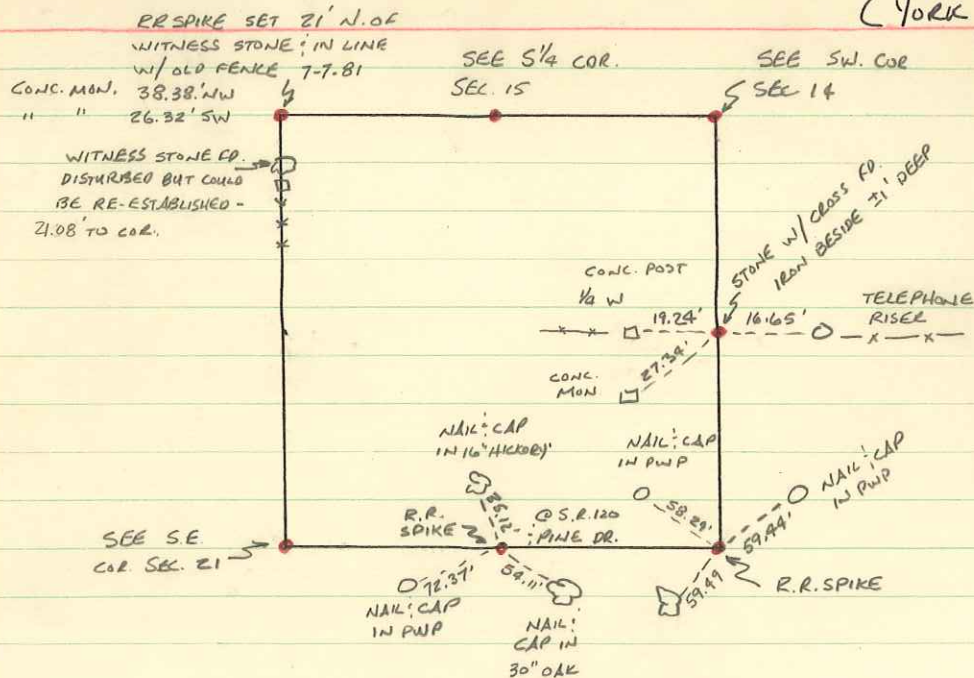 (YORK
RR SPIKE SET 21' N. OF
WITNESS STONE & IN LINE
W/ OLD FENCE 7-7-81
CONC. MON. 38.38' NW
" " 26.32' SW
SEE S 1/4 COR.
SEC. 15
SEE SW. COR
SEC 14
WITNESS STONE FD.
DISTURBED BUT COULD
BE RE-ESTABLISHED -
21.08' TO COR.
STONE W/ CROSS FD.
IRON BESIDE ±1' DEEP
CONC. POST
1/4 W
19.24'
16.65'
TELEPHONE
RISER
27.34'
CONC.
MON
NAIL & CAP
IN 16" HICKORY
NAIL & CAP
IN PWP
NAIL & CAP
IN PWP
58.29'
59.44'
SEE S.E.
COR. SEC. 21
R.R.
SPIKE
@ S.R. 120
& PINE DR.
72.37'
54.11'
59.49
R.R. SPIKE
NAIL & CAP
IN PWP
NAIL &
CAP IN
30" OAK